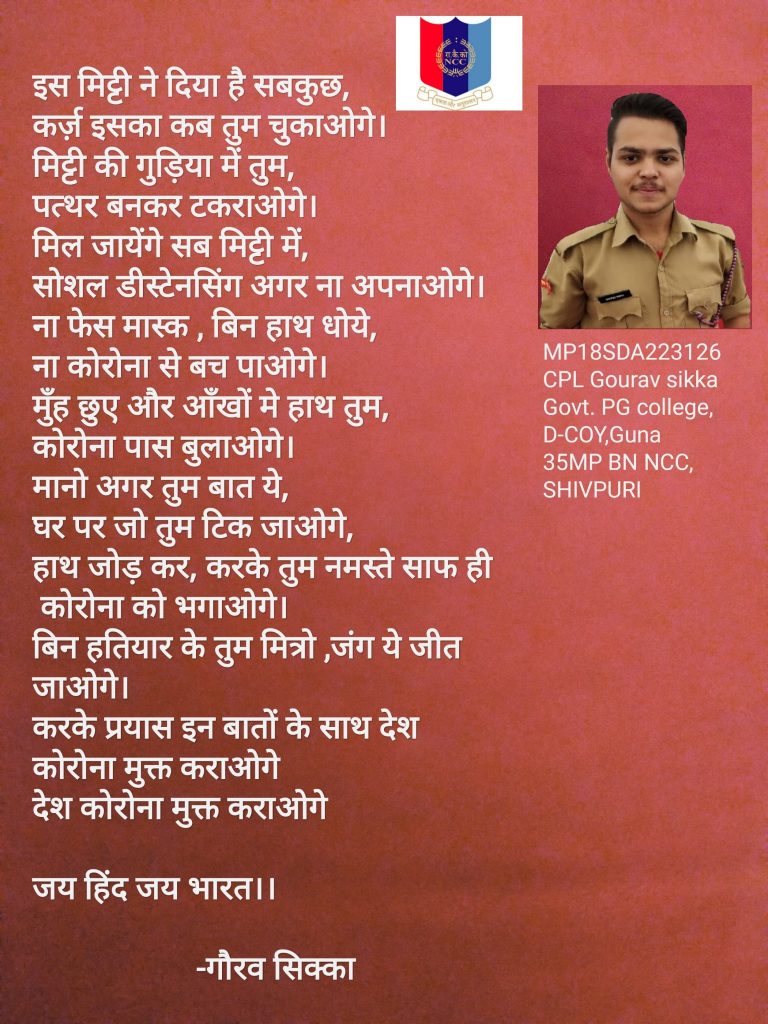 रा.कै.को
NCC
एकता और अनुशासन
इस मिट्टी ने दिया है सबकुछ,
कर्ज़ इसका कब तुम चुकाओगे।
मिट्टी की गुड़िया में तुम,
पत्थर बनकर टकराओगे।
मिल जायेंगे सब मिट्टी में,
सोशल डीस्टेनसिंग अगर ना अपनाओगे।
ना फेस मास्क , बिन हाथ धोये,
ना कोरोना से बच पाओगे।
मुँह छुए और आँखों मे हाथ तुम,
कोरोना पास बुलाओगे।
मानो अगर तुम बात ये,
घर पर जो तुम टिक जाओगे,
हाथ जोड़ कर, करके तुम नमस्ते साफ ही
कोरोना को भगाओगे।
बिन हतियार के तुम मित्रो ,जंग ये जीत
जाओगे।
करके प्रयास इन बातों के साथ देश
कोरोना मुक्त कराओगे
देश कोरोना मुक्त कराओगे
जय हिंद जय भारत।।
-गौरव सिक्का
MP18SDA223126
CPL Gourav sikka
Govt. PG college,
D-COY,Guna
35MP BN NCC,
SHIVPURI